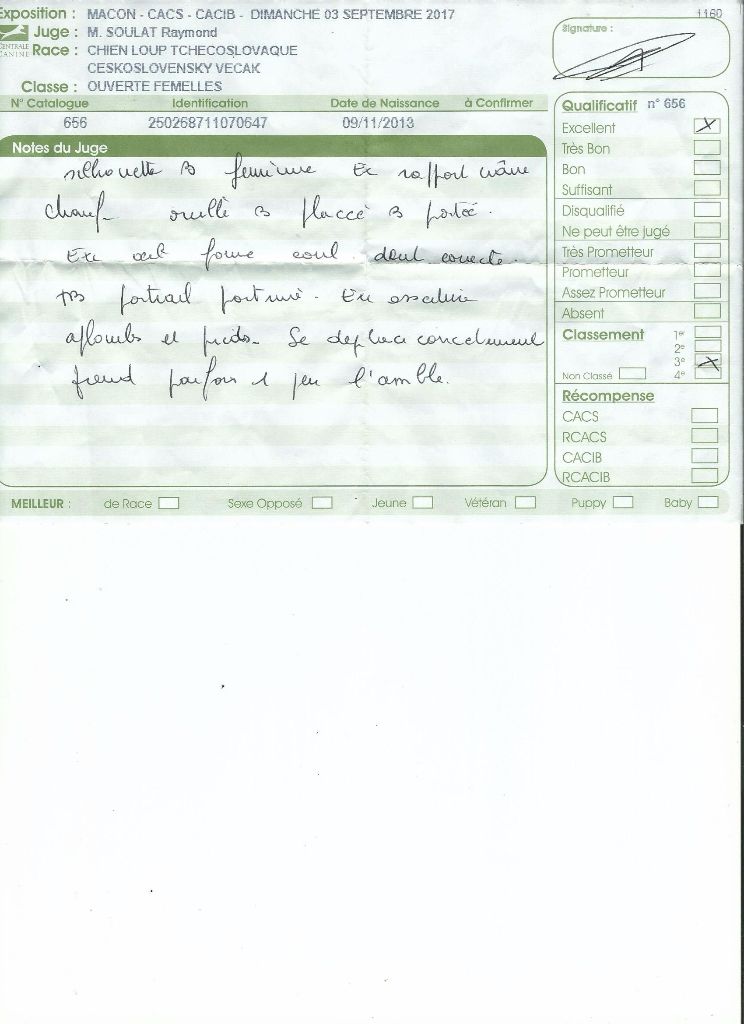 Exposition : MACON - CACS - CACIB - DIMANCHE 03 SEPTEMBRE 2017
1160
Juge : M. SOULAT Raymond
CENTRALE CANINE
Race : CHIEN LOUP TCHECOSLOVAQUE
CESKOSLOVENSKY VECAK
Classe : OUVERTE FEMELLES
Signature :
N° Catalogue Identification Date de Naissance à Confirmer
656 250268711070647 09/11/2013
Notes du Juge
silhouette B feminine Ex rapport crâne
chanf- oreille B placée B portée.
Exc oeil forme coul. dent correcte.
TB poitrail Ex ossature
aplombs et pieds- Se deplace correctement
prend parfois 1 peu l'amble.
Qualificatif n° 656
Excellent X
Très Bon
Bon
Suffisant
Disqualifié
Ne peut être jugé
Très Prometteur
Prometteur
Assez Prometteur
Absent
Classement 1er
2e
3e
Non Classé 4e
X
Récompense
CACS
RCACS
CACIB
RCACIB
MEILLEUR : de Race Sexe Opposé Jeune Vétéran Puppy Baby